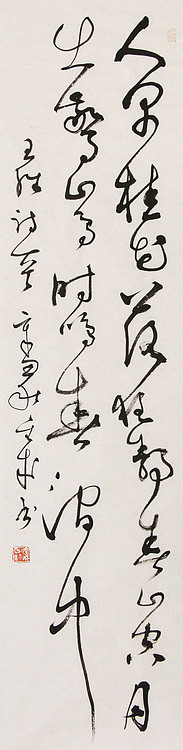 人闲桂花落夜静春山空月
出驚山鸟时鸣春涧中
王维诗一首